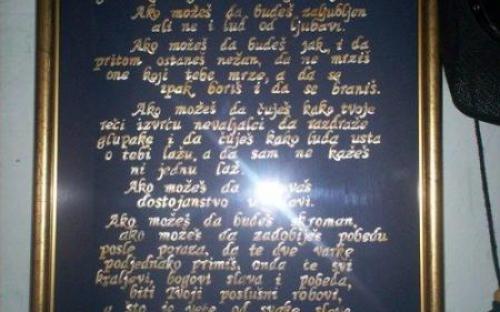 Ako možeš da budeš zaljubljen
ali ne i lud od ljubavi.
Ako možeš da budeš jak, i da
pritom ostaneš nežan, da ne mrziš
one koji tebe mrze, a da se
ipak boriš i da se braniš.
Ako možeš da čuješ kako tvoje
reči izvrću nevaljalci da razdraže
glupake i da čuješ kako luda usta
o tebi lažu, a da sam ne kažeš
ni jednu laž.
Ako možeš da vaš
dostojanstvo u
Ako možeš da budeš skroman,
ako možeš da zadobiješ pobedu
posle poraza, da te dve varke
podjednako primiš, onda te svi
kraljevi, bogovi slava i pobeda,
biti Tvoji poslušni robovi,
a što je veće od svake slave